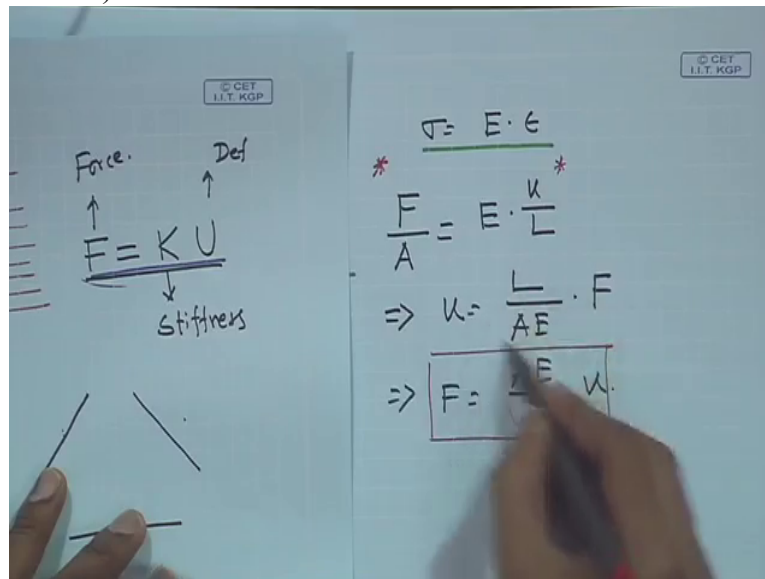 © CET
I.I.T. KGP
Force. Def
F = K U
Stiffness
© CET
I.I.T. KGP
σ = E · ϵ
* F/A = E · u/L *
=> u = L/AE · F
=> F = E u.